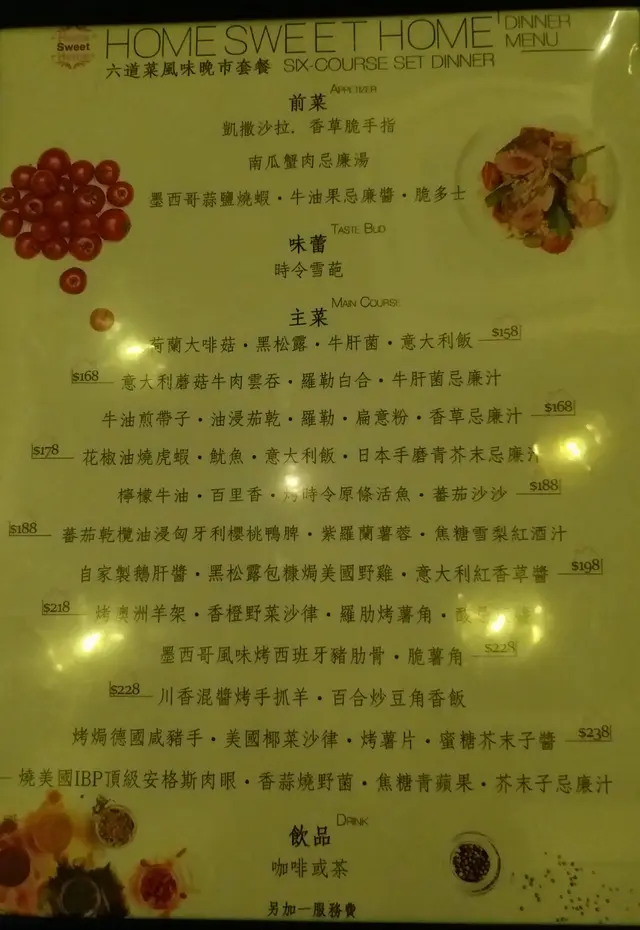 Sweet
HOME SWEET HOME
DINNER
MENU
六道菜風味晚市套餐 SIX-COURSE SET DINNER
前菜 APPETIZER
凱撒沙拉．香草脆手指
南瓜蟹肉忌廉湯
墨西哥蒜鹽燒蝦・牛油果忌廉醬・脆多士
味蕾 TASTE BUD
時令雪葩
主菜 MAIN COURSE
荷蘭大啡菇・黑松露・牛肝菌・意大利飯 $158
$168 意大利蘑菇牛肉雲吞・羅勒白合・牛肝菌忌廉汁
牛油煎帶子・油浸茄乾・羅勒・扁意粉・香草忌廉汁 $168
$178 花椒油燒虎蝦・魷魚・意大利飯・日本手磨青芥末忌廉汁
檸檬牛油・百里香・烤時令原條活魚・蕃茄沙沙 $188
$188 蕃茄乾欖油浸匈牙利櫻桃鴨脾・紫羅蘭薯蓉・焦糖雪梨紅酒汁
自家製鵝肝醬・黑松露包糠焗美國野雞・意大利紅香草醬 $198
$218 烤澳洲羊架・香橙野菜沙律・羅肋烤薯角・
墨西哥風味烤西班牙豬肋骨・脆薯角 $228
$228 川香混醬烤手抓羊・百合炒豆角香飯
烤焗德國咸豬手・美國椰菜沙律・烤薯片・蜜糖芥末子醬 $238
燒美國IBP頂級安格斯肉眼・香蒜燒野菌・焦糖青蘋果・芥末子忌廉汁
飲品 DRINK
咖啡或茶
另加一服務費